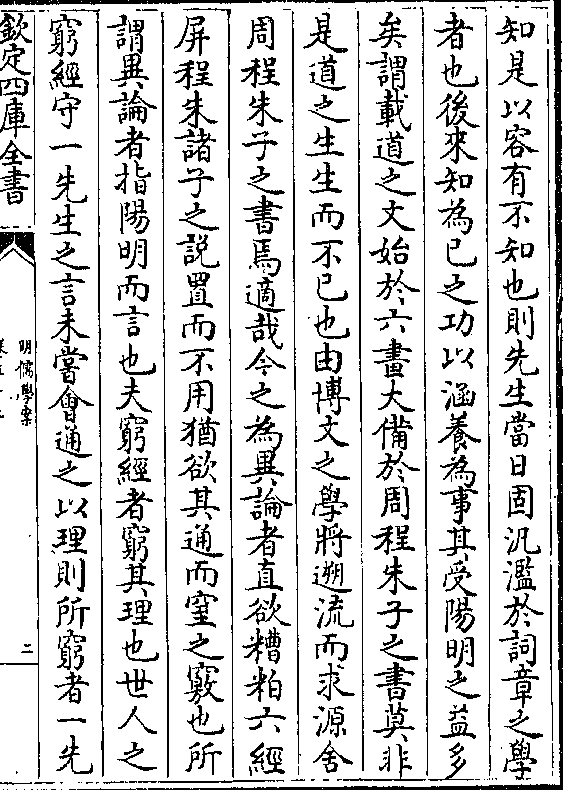 知是以容有不知也則先生當日固汎濫於詞章之學
者也後來知為已之功以涵養為事其受陽明之益多
矣謂載道之文始於六畫大備於周程朱子之書莫非
是道之生生而不已也由博文之學將遡流而求源舍
周程朱子之書焉適哉今之為異論者直欲糟粕六經
屏程朱諸子之説置而不用猶欲其通而窒之竅也所
謂異論者指陽明而言也夫窮經者窮其理也世人之
窮經守一先生之言未嘗會通之以理則所窮者一先
欽定四庫全書
明儒學案
二